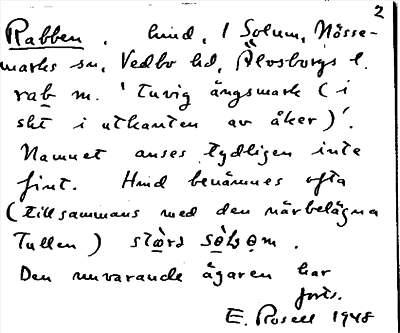 2
Rabben, hmd, i Solum, Nösse-
marks sn, Vedbo hd, Älvsborgs l.
rab m. 'tuvig ängsmark (i
sht i utkanten av åker)'.
Namnet anses tydligen inte
fint. Hmd benämnes ofta
(tillsammans med den närbelägna
Tullen)
Den nuvarande ägaren har
forts.
E. Rosell 1948